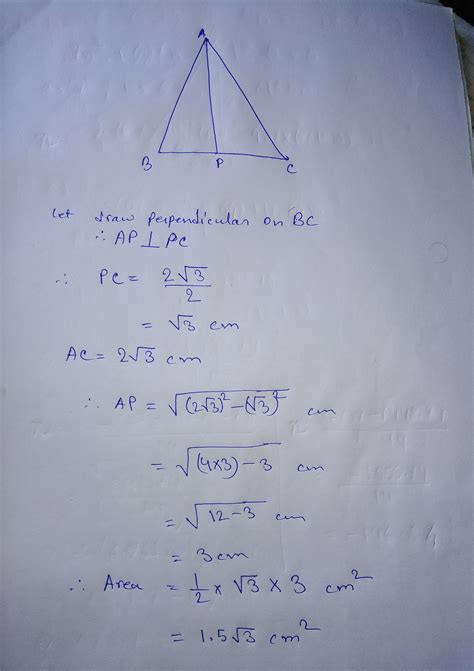 A
B P C
Let draw perpendicular on BC
∴ AP ⊥ PC
∴ PC = 2√3/2
= √3 cm
AC = 2√3 cm
∴ AP = √((2√3)² - (√3)²) cm
= √((4×3) - 3) cm
= √(12 - 3) cm
= 3 cm
∴ Area = 1/2 × √3 × 3 cm²
= 1.5√3 cm²